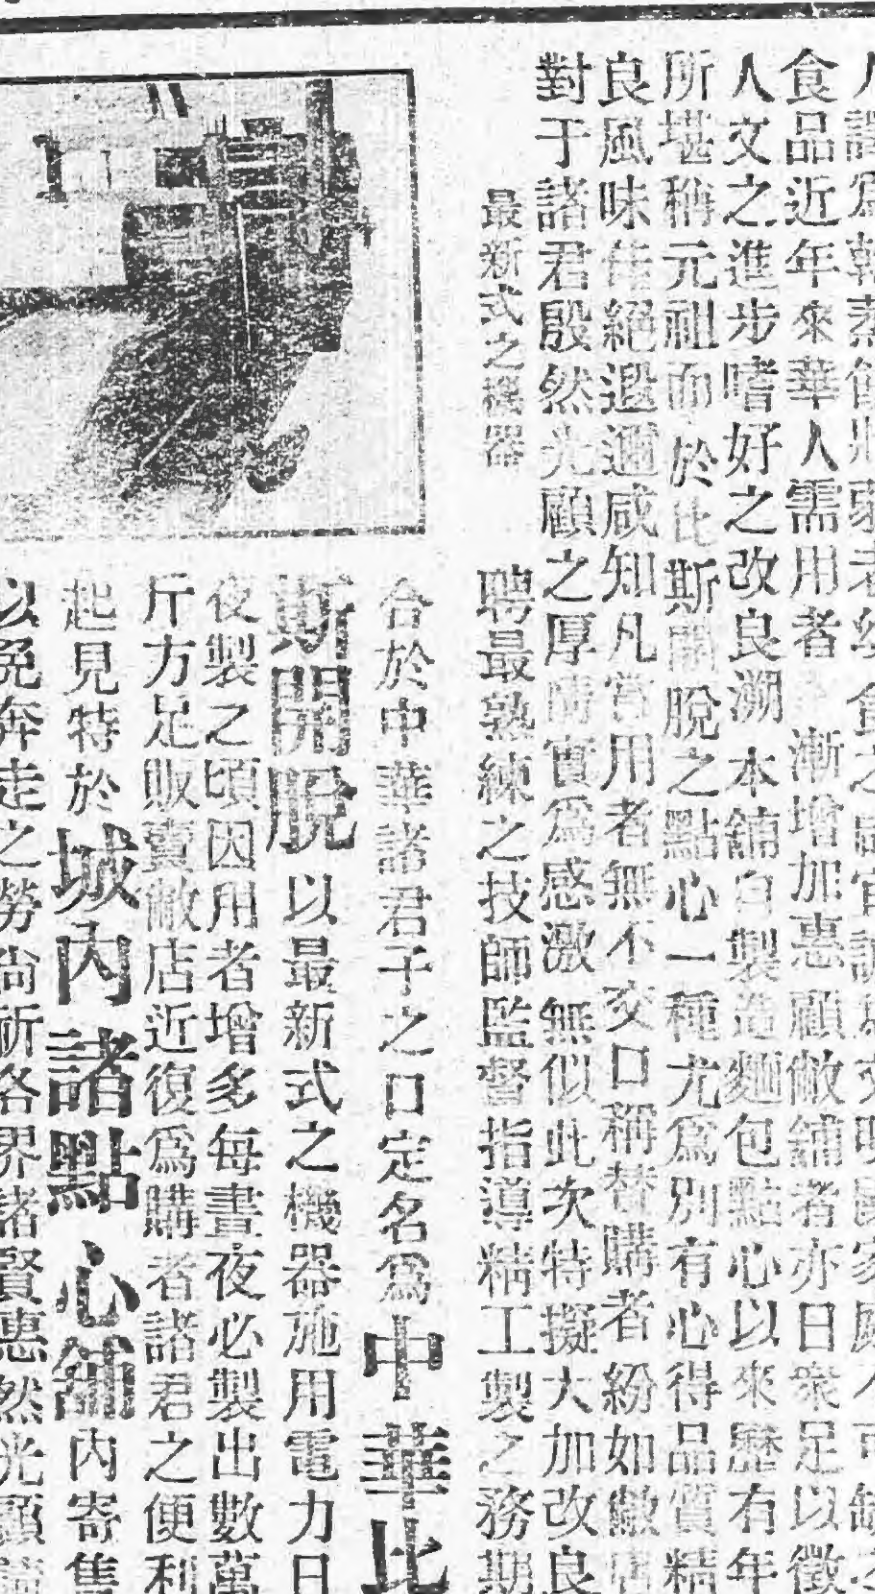 食之
食品近年來華人需用者漸增加惠顧敝舖者亦日衆足以徵
人文之進步嗜好之改良溯本舖自製造麵包點心以來歷有年
所堪稱元祖而於比斯開脫之點心一種尤爲別有心得品質精
良風味佳絕遐邇咸知凡嘗用者無不交口稱替購者紛如敝店
對于諸君殷然光顧之厚情實爲感激無似此次特擬大加改良
最新式之機器
聘最熟練之技師監督指導精工製之務期
合於中華諸君子之口定名爲中華比
斯開脫以最新式之機器施用電力日
夜製之頃因用者增多每晝夜必製出數萬
斤方足販賣敝店近復爲購者諸君之便利
起見特於城內諸點心舖內寄售
以免奔走之勞尙祈各界諸賢惠然光顧